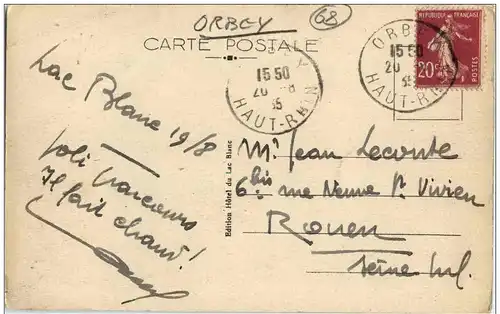 ORBEY
68
CARTE POSTALE
15 50
20 -8
35
HAUT-RHIN
ORBEY
15 50
20
35
HAUT-RHIN
REPUBLIQUE FRANÇAISE
20c
POSTES
Lac Blanc 19/8
Joli parcours
Il fait chaud!
Edition Hôtel du Lac Blanc
Mr Jean Lecomte
6 bis rue Neuve St Vivien
Rouen
Seine Inf.